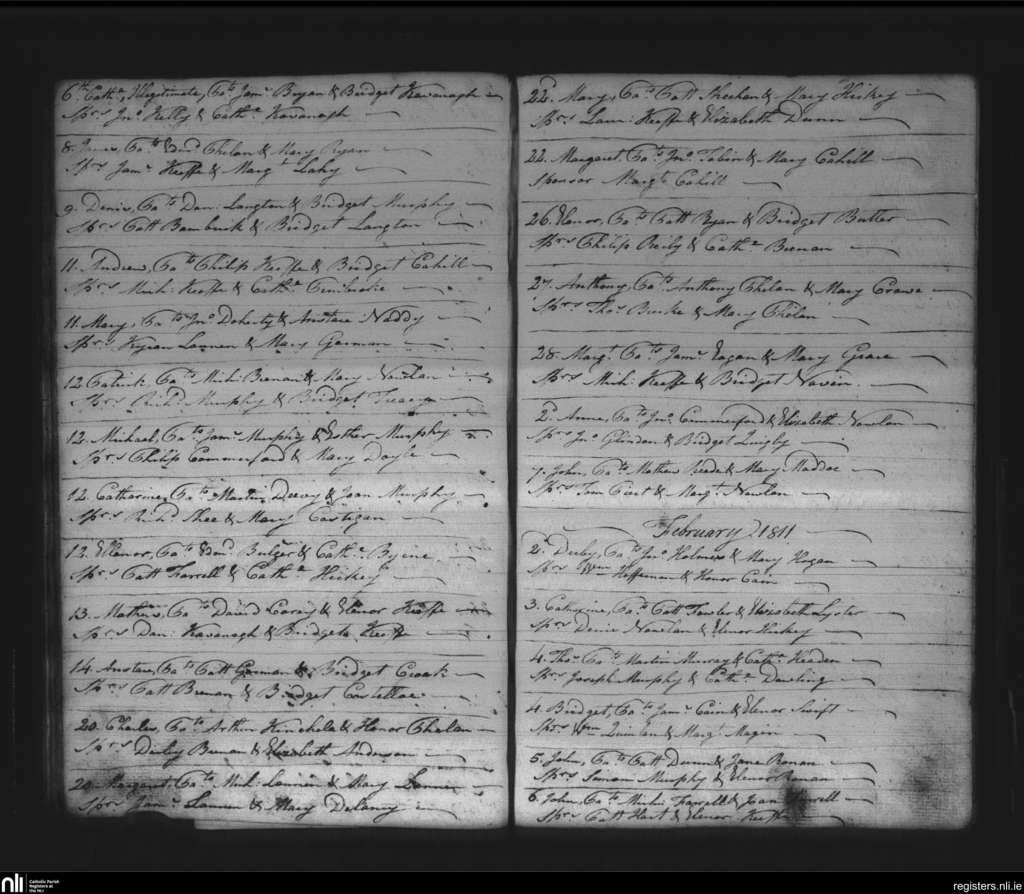 6th Cathe, Illegitimate, Bato Jams Bryan & Bridget Kavanagh
Sprs Jno Kelly & Cathe Kavanagh
8. James, Bato Edmd Phelan & Mary Ryan
Sprs Jams Keeffe & Margt Lahy
9. Denis, Bato Dan: Langton & Bridget Murphy
Sprs Patt Bambrick & Bridget Langton
11. Andrew, Bato Philip Keeffe & Bridget Cahill
Sprs Mich: Keeffe & Cathe
11. Mary, Bato Jno Doherty & Anstace Naddy
Sprs Kyran Lannen & Mary Gorman
12. Patrick, Bato Mich: Brenan & Mary Nowlan
Sprs Richd Murphy & Bridget Treacy
12. Michael, Bato Jams Murphy & Esther Murphy
Sprs Philip Commerford & Mary Doyle
12. Catharine, Bato Martin Deevy & Joan Murphy
Sprs Richd Shee & Mary Costigan
12. Ellenor, Bato Edmd Bulger & Cathe Byrne
Sprs Patt Farrell & Cathe Hickey
13. Mathew, Bato David & Elenor Keeffe
Sprs Dan: Kavanagh & Bridgeta Keeffe
14. Anstace, Bato Patt Gorman & Bridget Croak
Sprs Patt Brenan & Bridget Costelloe
20. Charles, Bato Arthur Kinchela & Honor Phelan
Sprs Darby Brenan & Elizabeth Anderson
20. Margaret, Bato Mich: Lannen & Mary Lannen
Sprs Jams Lannen & Mary Delany
22. Mary, Bato Patt Sheehan & Mary Hickey
Sprs Laur: Keeffe & Elizabeth Dunn
22. Margaret, Bato Jno Tobin & Mary Cahill
Sponsor Margt Cahill
26. Elenor, Bato Patt Ryan & Bridget Butler
Sprs Philip Reily & Cathe Brenan
27. Anthony, Bato Anthony Phelan & Mary Crowe
Sprs Thos Burke & Mary Phelan
28. Margt Bato Jams Eagan & Mary Grace
Sprs Mich: Keeffe & Bridget Naven
2d Anne, Bato Jno Commerford & Elizabeth Nowlan
Sprs Jno & Bridget Quigly
7. John, Bato Mathew Reede & Mary Maddoc
Sprs Tom & Margt Nowlan
February 1811
2d Derby, Bato Jno Holmes & Mary Hogan
Sprs Wm Heffernan & Honor Cain
3. Catharine, Bato Patt Fowler & Elizabeth Lyster
Sprs Denis Nowlan & Elenor Hickey
4. Thos Bato Martin Murray & Cathe Headen
Sprs Joseph Murphy & Cathe Dowling
4. Bridget, Bato Jams Cain & Elenor Swift
Sprs Wm Quinlan & Margt Magen
5. John, Bato Patt Dunn & Jane Ronan
Sprs Simon Murphy & Elenor Ronan
6. John, Bato Mich: Farrell & Joan Farrell
Sprs Patt Hart & Elenor Keeffe
nli
Catholic Parish
Registers at
the NLI
registers.nli.ie